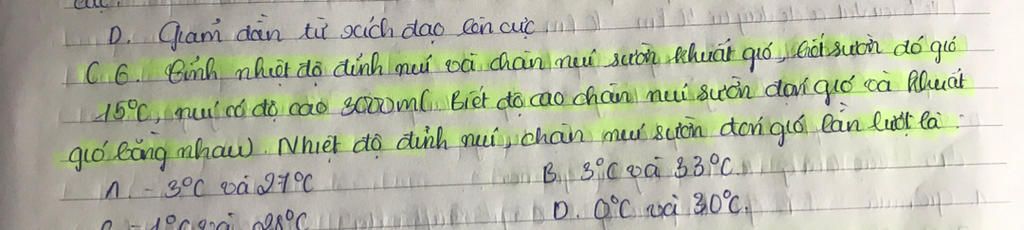 D. Giảm dần từ xích đạo lên cực
C 6. Tính nhiệt độ đỉnh núi và chân núi sườn khuất gió, biết sườn đó gió
15°C, núi có độ cao 3000m(. Biết độ cao chân núi sườn đón gió và khuất
gió bằng nhau). Nhiệt độ đỉnh núi, chân núi sườn đón gió lần lượt là:
A. -3°C và 27°C B. 3°C và 33°C.
và 28°C D. 0°C và 30°C.